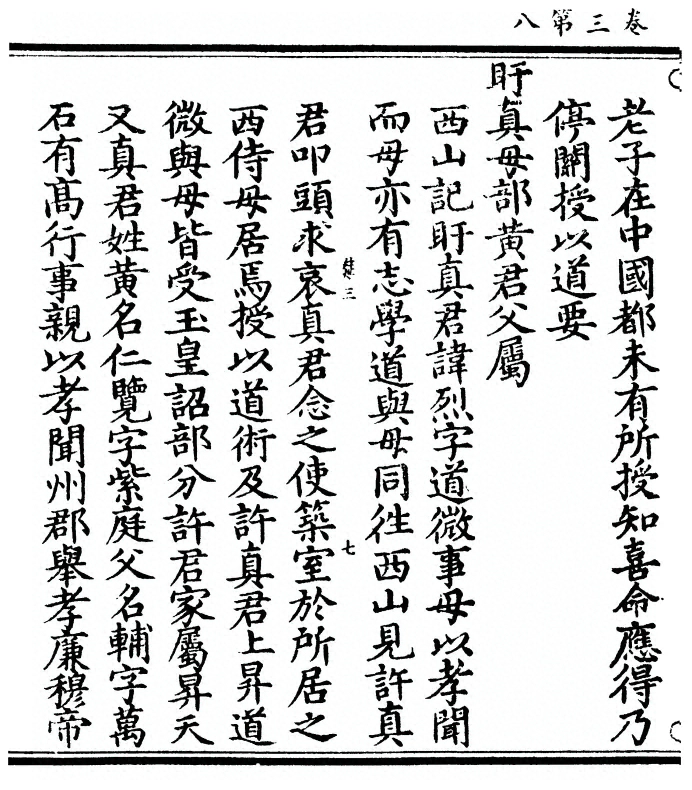 卷三第八
老子在中國都未有所授知喜命應得乃
停關授以道要
盱真母部黃君父屬
西山記盱真君諱烈字道微事母以孝聞
而母亦有志學道與母同往西山見許真
君叩頭求哀真君念之使築室於所居之
西侍母居焉授以道術及許真君上昇道
微與母皆受玉皇詔部分許君家屬昇天
又真君姓黃名仁覽字紫庭父名輔字萬
石有高行事親以孝聞州郡舉孝廉穆帝
三
七